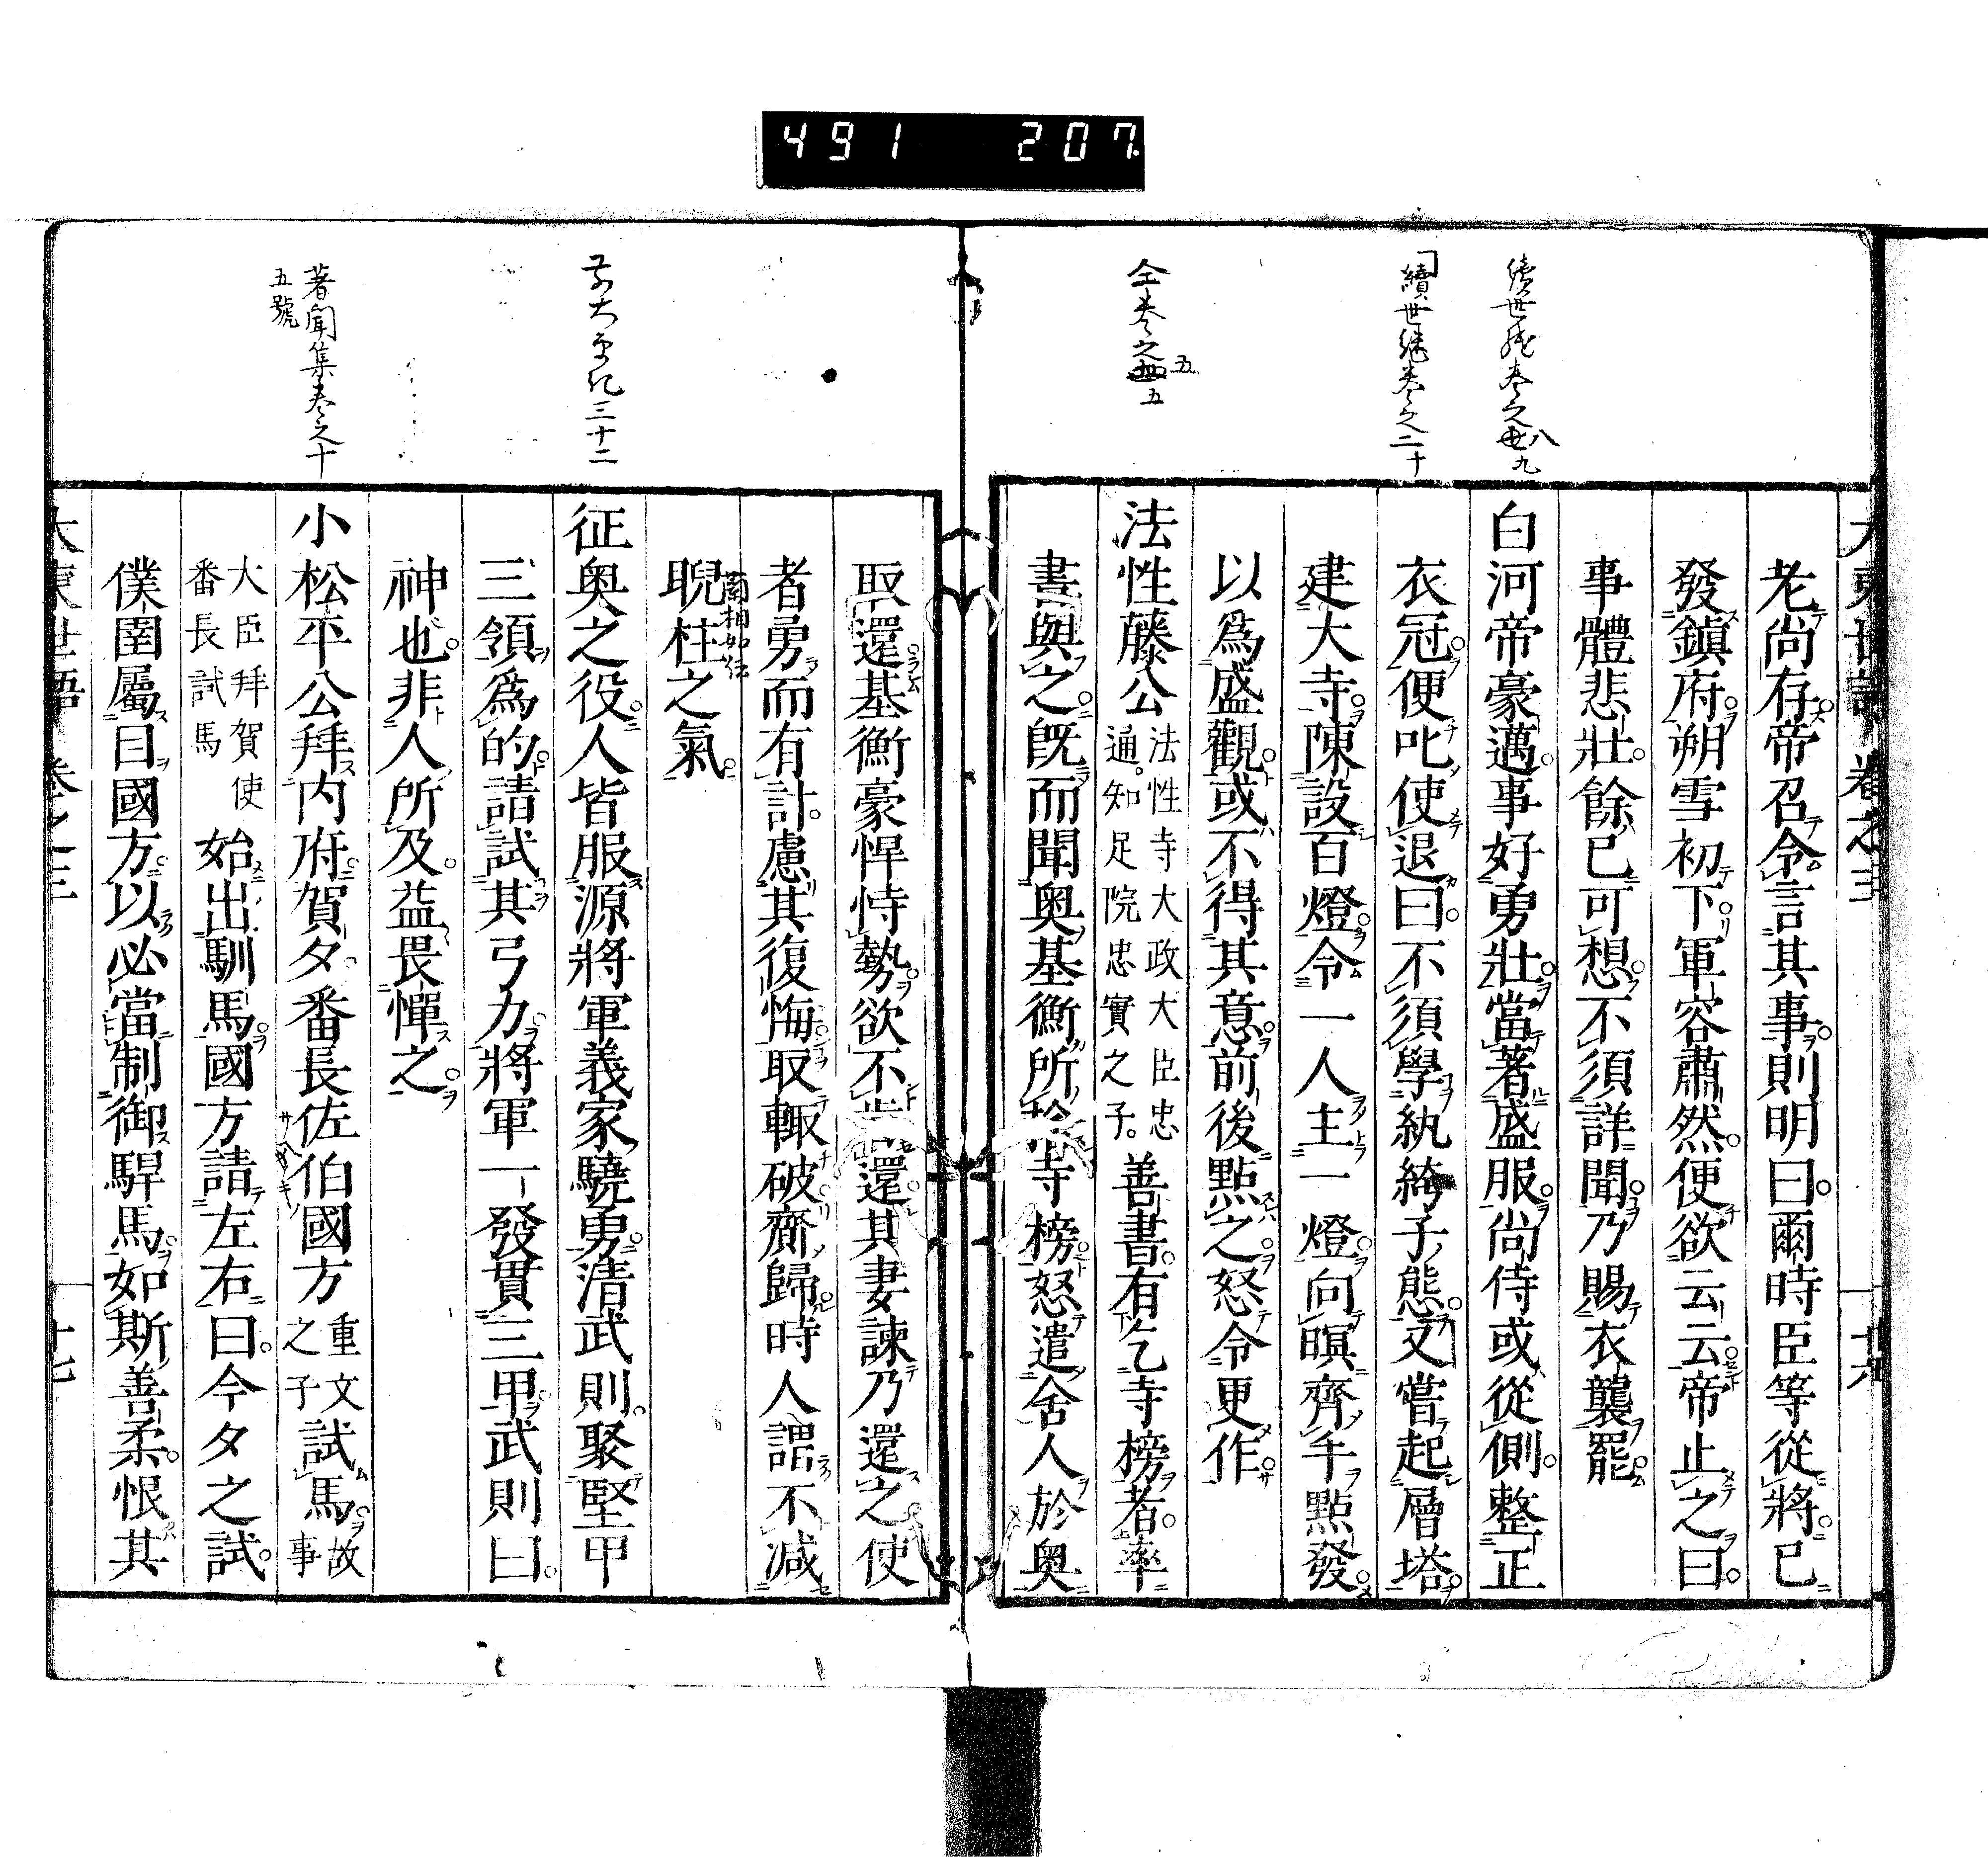 491 207
大東世語 卷之三 廿六
老尚存帝召令言其事則明曰爾時臣等從將已
發鎭府朔雪初下軍容肅然便欲云云帝止之曰
事體悲壯餘已可想不須詳聞乃賜衣襲罷
白河帝豪邁事好勇壯當著盛服尚侍或從側整正
衣冠便叱使退曰不須學紈絝子態又嘗起層塔
建大寺陳設百燈令一人主一燈向暝齊手點發
以爲盛觀或不得其意前後點之怒令更作
法性藤公法性寺大政大臣忠通知足院忠實之子善書有乞寺榜者率
書與之既而聞奥基衡所於寺榜怒遣舍人於奥
取還基衡豪悍恃勢欲不還其妻諫乃還之使
者勇而有計慮其復悔取輙破齎歸時人謂不減
藺相如傳
睨柱之氣
征奥之役人皆服源將軍義家驍勇清武則聚堅甲
三領爲的請試其弓力將軍一發貫三甲武則曰
神也非人所及益畏憚之
小松平公拜内府賀夕番長佐伯國方重文之子試馬故事
大臣拜賀使番長試馬始出馴馬國方請左右曰今夕之試
僕圉屬曰國方以必當制御駻馬如斯善柔恨其
大東世語 卷之三 廿七
續世繼卷之八九
續世継卷之二十
仝卷之五
五
三十二
著聞集卷之十
五號